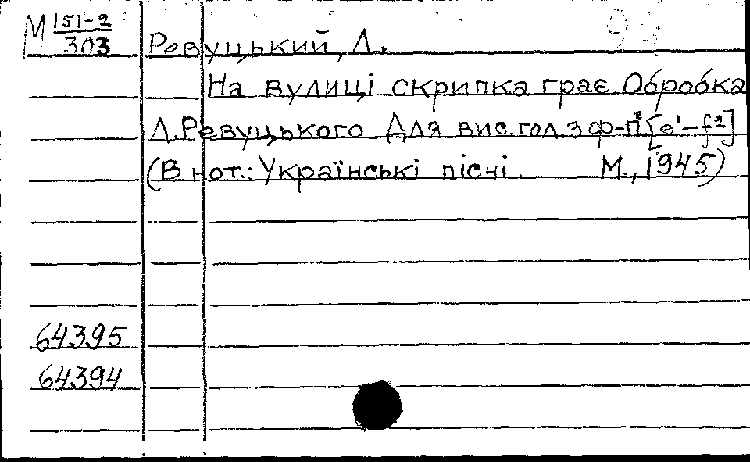 М 151-2
303
Ревуцький, Л.
На вулиці скрипка грає. Обробка
Л. Ревуцького. Для вис. гол. з ф-п. [e¹-f²]
(В нот.: Українські пісні. М., 1945)
64395
64394